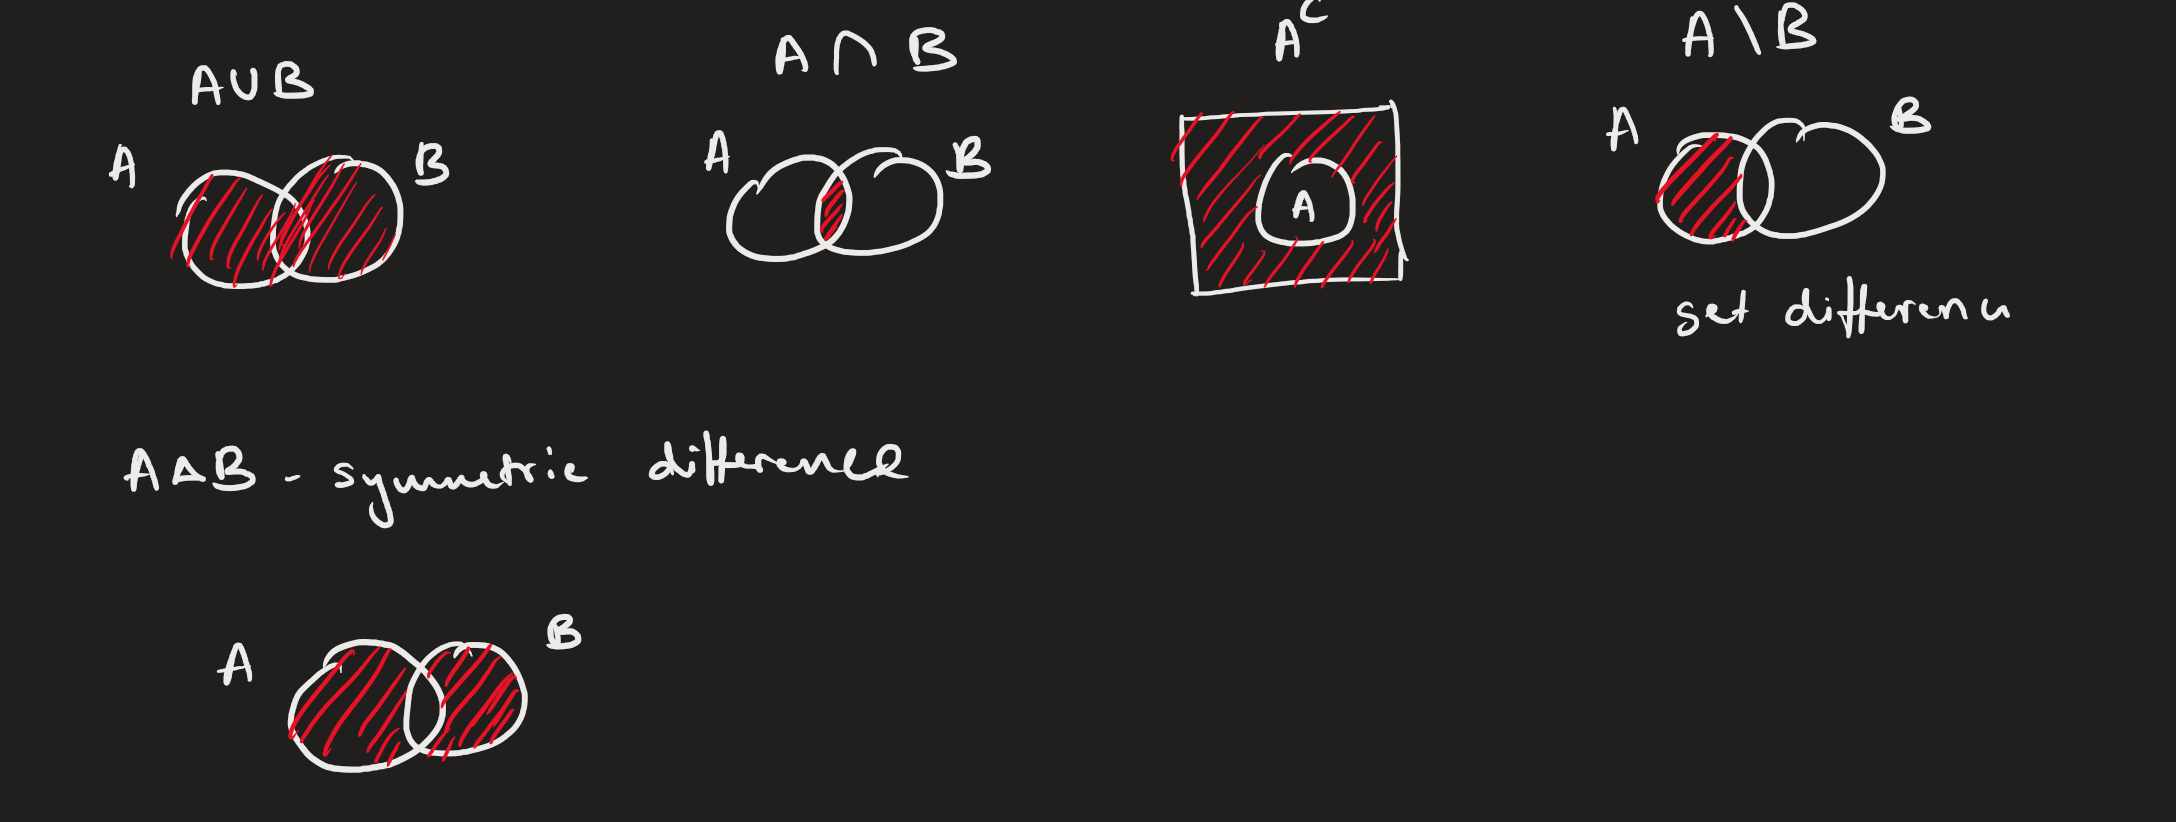 A∪B
A B
A ∩ B
A B
Aᶜ
A
A \ B
A B
set differenc
A△B - symmetric difference
A B